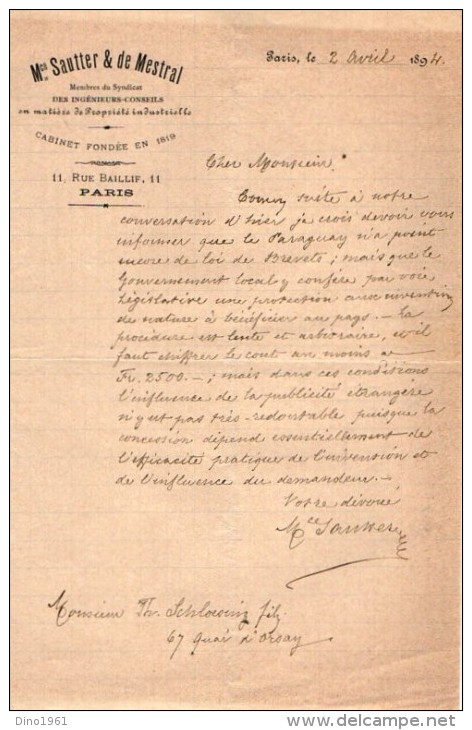 Mce Sautter & de Mestral
Membres du Syndicat
DES INGÉNIEURS-CONSEILS
en matière de Propriété industrielle
CABINET FONDÉE EN 1819
11, RUE BAILLIF, 11
PARIS
Paris, le 2 avril 1894.
Cher Monsieur,
Comme suite à notre
conversation d'hier je crois devoir vous
informer que le Paraguay n'a point
encore de loi de Brevets ; mais que le
Gouvernement local y confère par voie
législative une protection aux inventions
de nature à bénéficier au pays. — La
procédure est lente et arbitraire, et il
faut chiffrer le cout au moins a
Fr. 2500.— ; mais dans ces conditions
l'influence de la publicité étrangère
n'y est pas très-redoutable puisque la
concession dépend essentiellement de
l'efficacité pratique de l'invention et
de l'influence du demandeur. —
Votre dévoué
Mce Sautter
Monsieur Th. Schloesing fils
67 quai d'Orsay
Dino1961